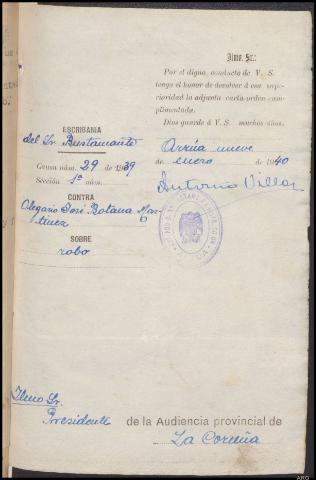 Ilmo. Sr.:
Por el digno, conducto de V. S.
tengo el honor de devolver á esa supe-
rioridad la adjunta carta-orden cum-
plimentada.
Dios guarde á V. S. muchos años.
ESCRIBANIA
del Sr. Bustamante
Causa núm. 29 de 1939
Sección 1ª
CONTRA
José Botana Mar
tinez
SOBRE
robo
Arzúa nueve
de enero de 1940
Antonio Villar
Ilmo Sr.
Presidente de la Audiencia provincial de
La Coruña